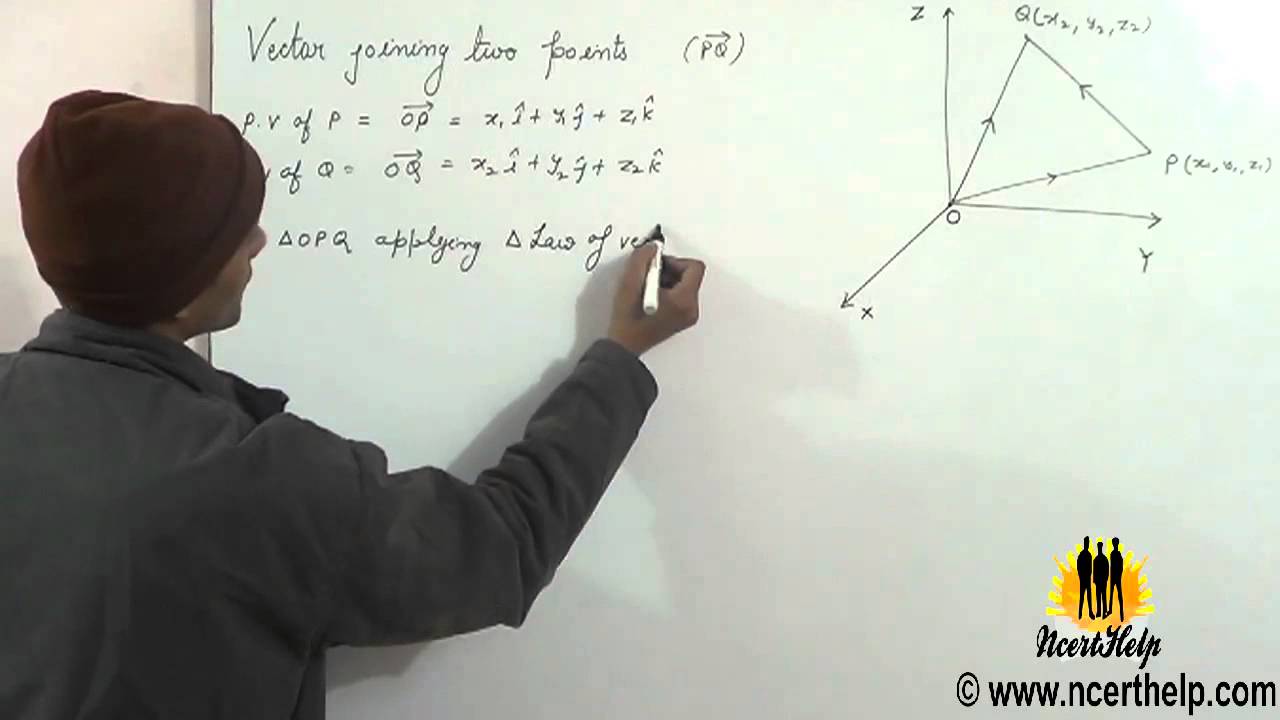 Vector joining two points (PQ⃗)
p.v of P = OP⃗ = x₁î + y₁ĵ + z₁k̂
of Q = OQ⃗ = x₂î + y₂ĵ + z₂k̂
△OPQ applying △ Law of vec
Z
Q(x₂, y₂, z₂)
P(x₁, y₁, z₁)
O
Y
X
NcertHelp
© www.ncerthelp.com